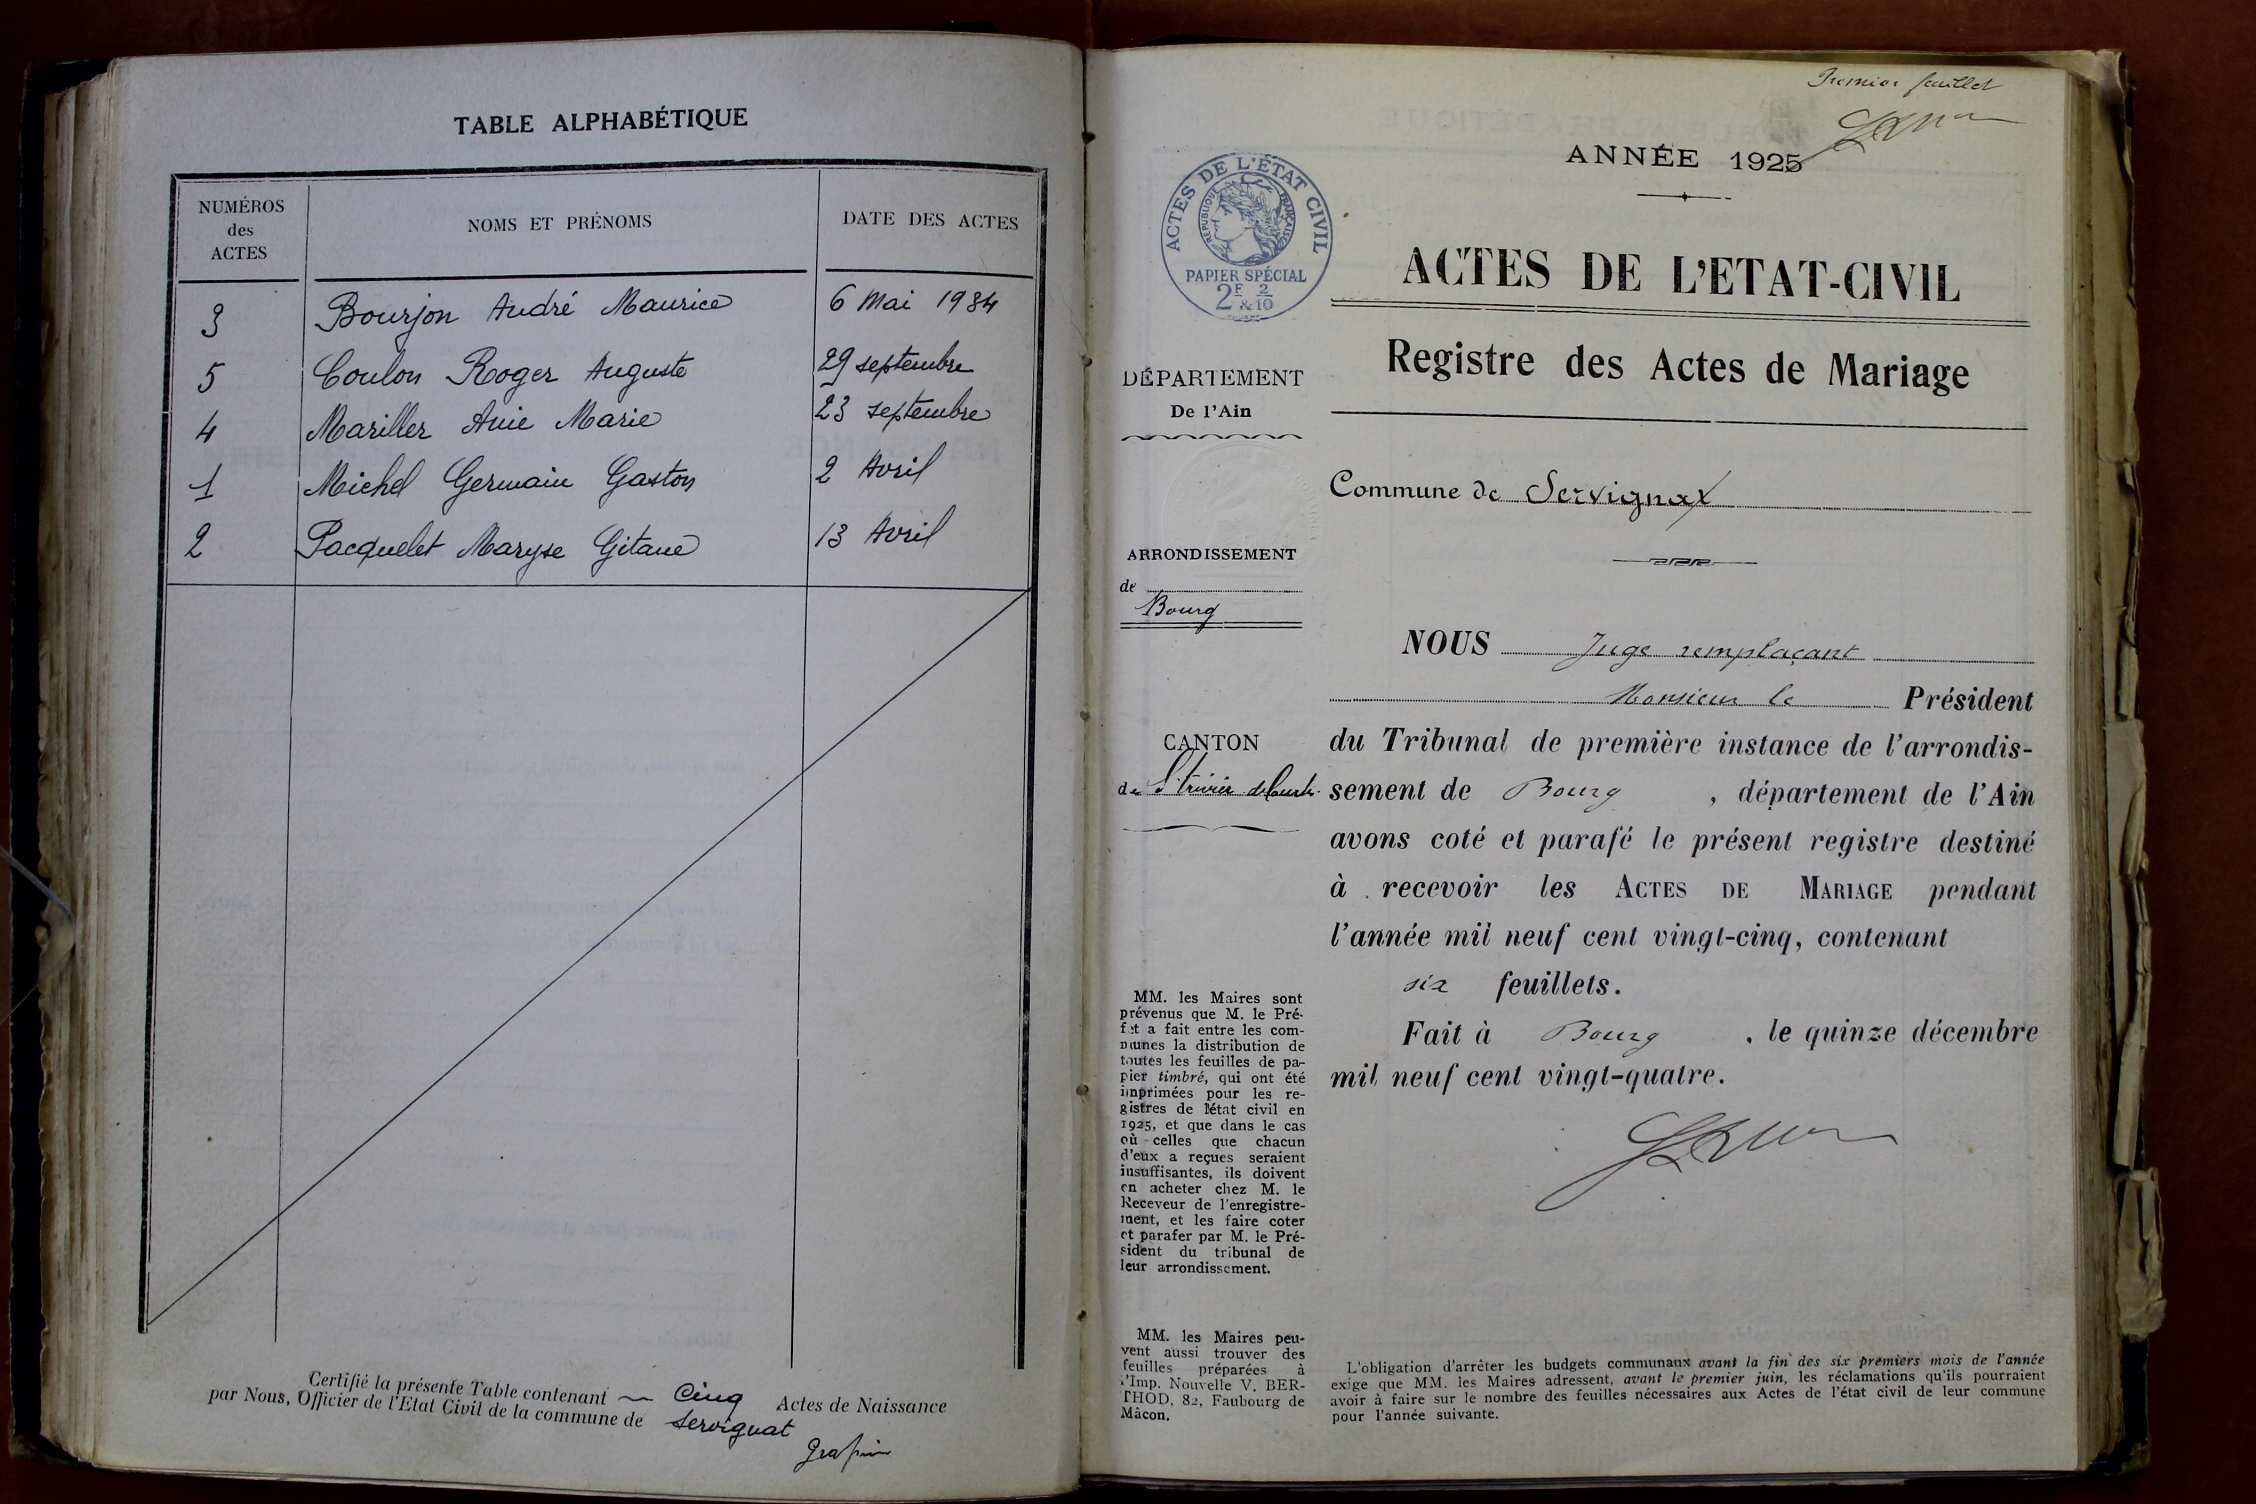 TABLE ALPHABÉTIQUE
NUMÉROS
des
ACTES
NOMS ET PRÉNOMS
DATE DES ACTES
3 Bourjon André Maurice 6 Mai 1934
5 Coulon Roger Auguste 29 septembre
4 Mariller Anie Marie 23 septembre
1 Michel Germain Gaston 2 Avril
2 Pacquelet Maryse Gitane 13 Avril
Certifié la présente Table contenant Cinq Actes de Naissance
par Nous, Officier de l'Etat Civil de la commune de Servignat
Premier feuillet
ANNÉE 1925
ACTES DE L'ÉTAT CIVIL
RÉPUBLIQUE FRANÇAISE
PAPIER SPÉCIAL
2F & 2/10
ACTES DE L'ETAT-CIVIL
Registre des Actes de Mariage
DÉPARTEMENT
De l'Ain
Commune de Servignat
ARRONDISSEMENT
de
Bourg
CANTON
de St Trivier de Courtes
NOUS Juge remplaçant
Monsieur le Président
du Tribunal de première instance de l'arrondis-
sement de Bourg, département de l'Ain
avons coté et parafé le présent registre destiné
à recevoir les ACTES DE MARIAGE pendant
l'année mil neuf cent vingt-cinq, contenant
six feuillets.
Fait à Bourg, le quinze décembre
mil neuf cent vingt-quatre.
MM. les Maires sont
prévenus que M. le Pré-
fet a fait entre les com-
munes la distribution de
toutes les feuilles de pa-
pier timbré, qui ont été
imprimées pour les re-
gistres de l'état civil en
1925, et que dans le cas
où celles que chacun
d'eux a reçues seraient
insuffisantes, ils doivent
en acheter chez M. le
Receveur de l'enregistre-
ment, et les faire coter
et parafer par M. le Pré-
sident du tribunal de
leur arrondissement.
MM. les Maires peu-
vent aussi trouver des
feuilles préparées à
l'Imp. Nouvelle V. BER-
THOD, 82, Faubourg de
Mâcon.
L'obligation d'arrêter les budgets communaux avant la fin des six premiers mois de l'année
exige que MM. les Maires adressent, avant le premier juin, les réclamations qu'ils pourraient
avoir à faire sur le nombre des feuilles nécessaires aux Actes de l'état civil de leur commune
pour l'année suivante.